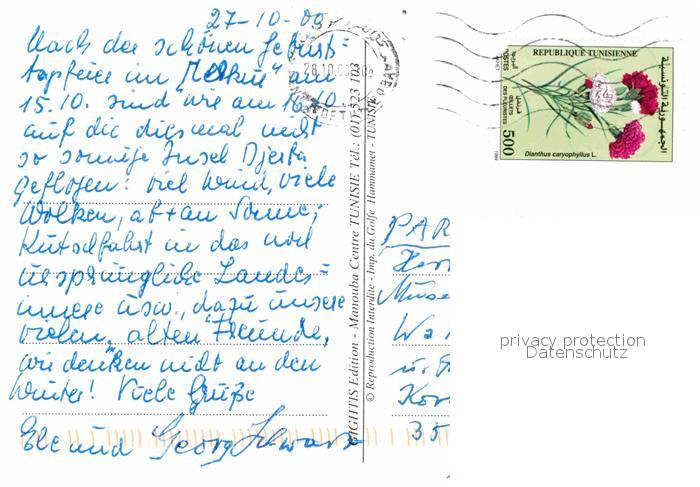 27-10-05
Nach der schönen Geburts=
tagsfeier im am
15.10. sind wir am 16.10.
auf die diesmal nicht
so sonnige Insel Djerba
geflogen: viel Wind, viele
Wolken, ab + an Sonne;
Kutschfahrt in das noch
ursprüngliche Landes=
innere usw., dazu unsere
vielen "alten" Freunde,
wir denken nicht an den
Winter! Viele Grüße
und Georg Schwarz
GIGHTIS Edition - Manouba Centre TUNISIE Tél.: (01) 523 103
© Reproduction Interdite - Imp. du Golfe Hammamet - TUNISIE
28.10.
REPUBLIQUE TUNISIENNE
الجمهورية التونسية
POSTES
البريد
OEILLETS
DES FLEURISTES
500
Dianthus caryophyllus L.
1999
PAR
Muse
Wa
Kor
35
privacy protection
Datenschutz